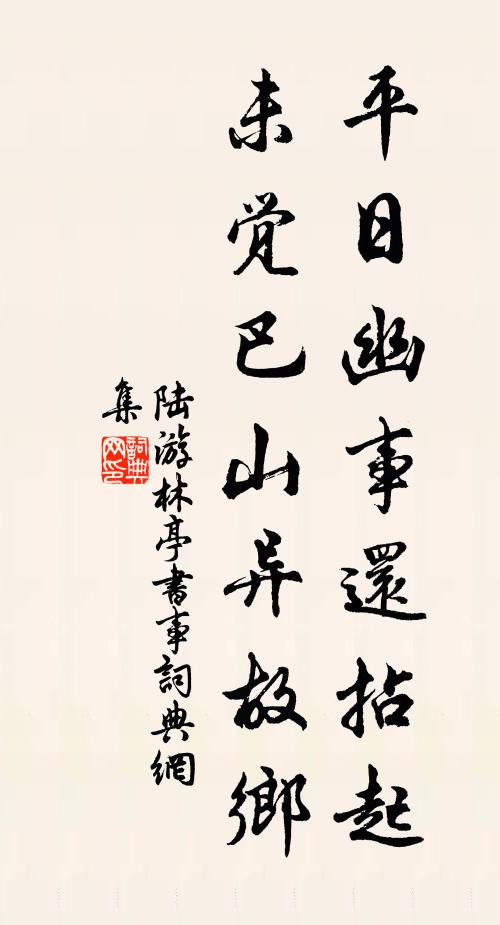 平日幽事還拈起
未觉巴山异故鄉
陆游林亭書事詞典網
集
詞典网印